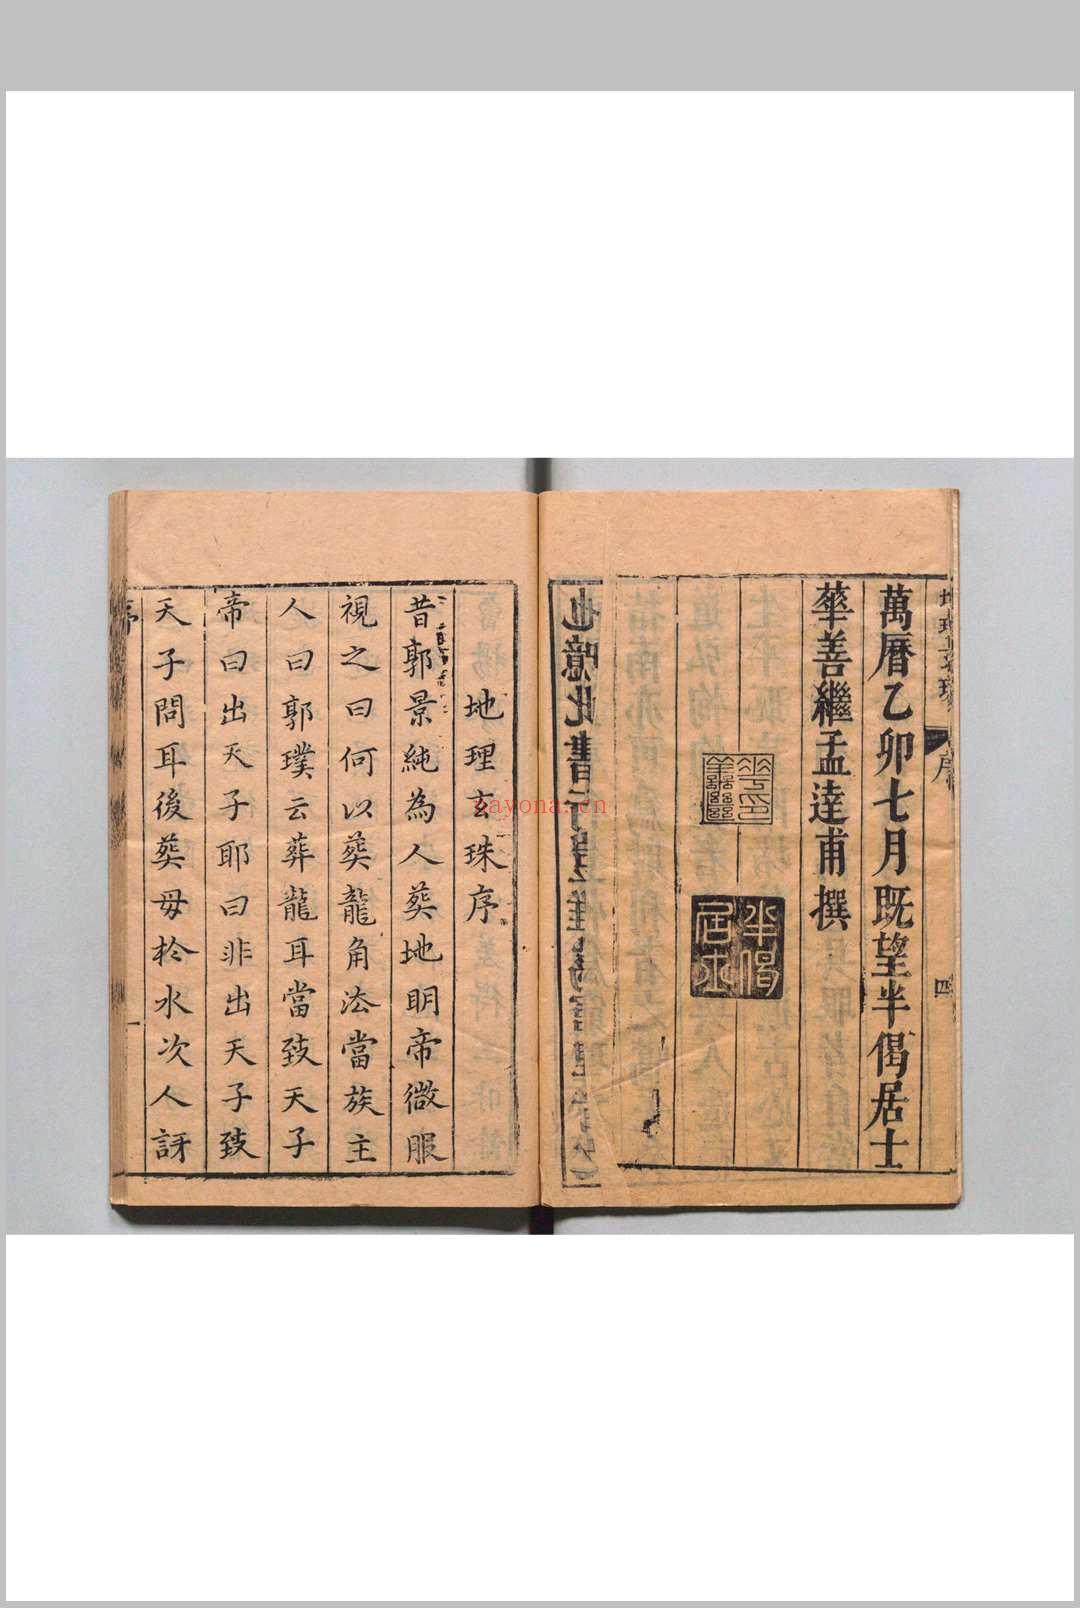 萬曆乙卯七月既望半偈居士
華善繼孟達甫撰
半偈居士
序
四
地理玄珠序
昔郭景純為人葬地明帝微服
視之曰何以葬龍角法當族主
人曰郭璞云葬龍耳當致天子
帝曰出天子耶曰非出天子致
天子問耳後葬母於水次人訝
序
一
nayona.cn